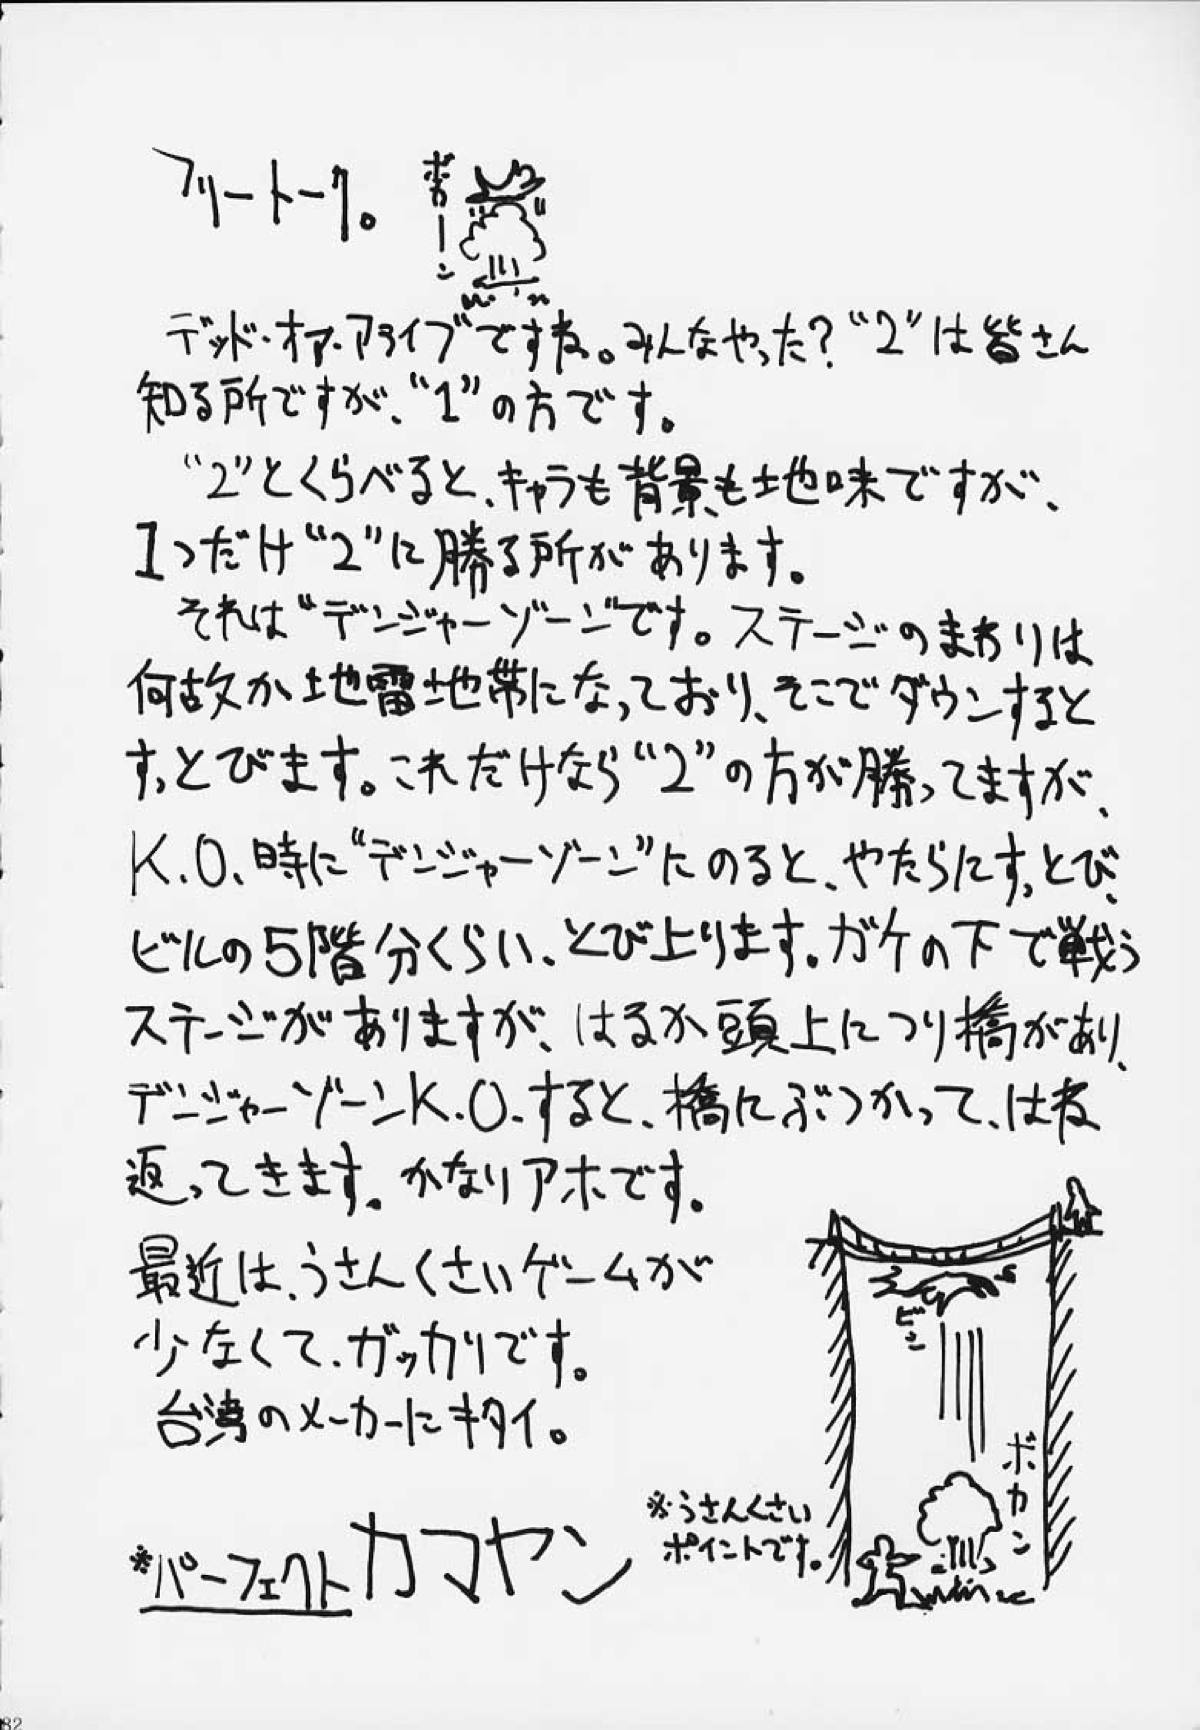 フリートーク。
ボカーン
デッド・オア・アライブですね。みんなやった?“2”は皆さん
知る所ですが、“1”の方です。
“2”とくらべると、キャラも背景も地味ですが、
1つだけ“2”に勝る所があります。
それは“デンジャーゾーン”です。ステージのまわりは
何故か地雷地帯になっており、そこでダウンすると
すっとびます。これだけなら“2”の方が勝ってますが、
K.O.時に“デンジャーゾーン”にのると、やたらにすっとび、
ビルの5階分くらい、とび上ります。ガケの下で戦う
ステージがありますが、はるか頭上につり橋があり、
デンジャーゾーンK.O.すると、橋にぶつかって、はね
返ってきます。かなりアホです。
最近は、うさんくさいゲームが
少なくて、ガッカリです。
台湾のメーカーにキタイ。
ビシ
ボカン
※うさんくさい
ポイントです。
※パーフェクトカマヤン
82